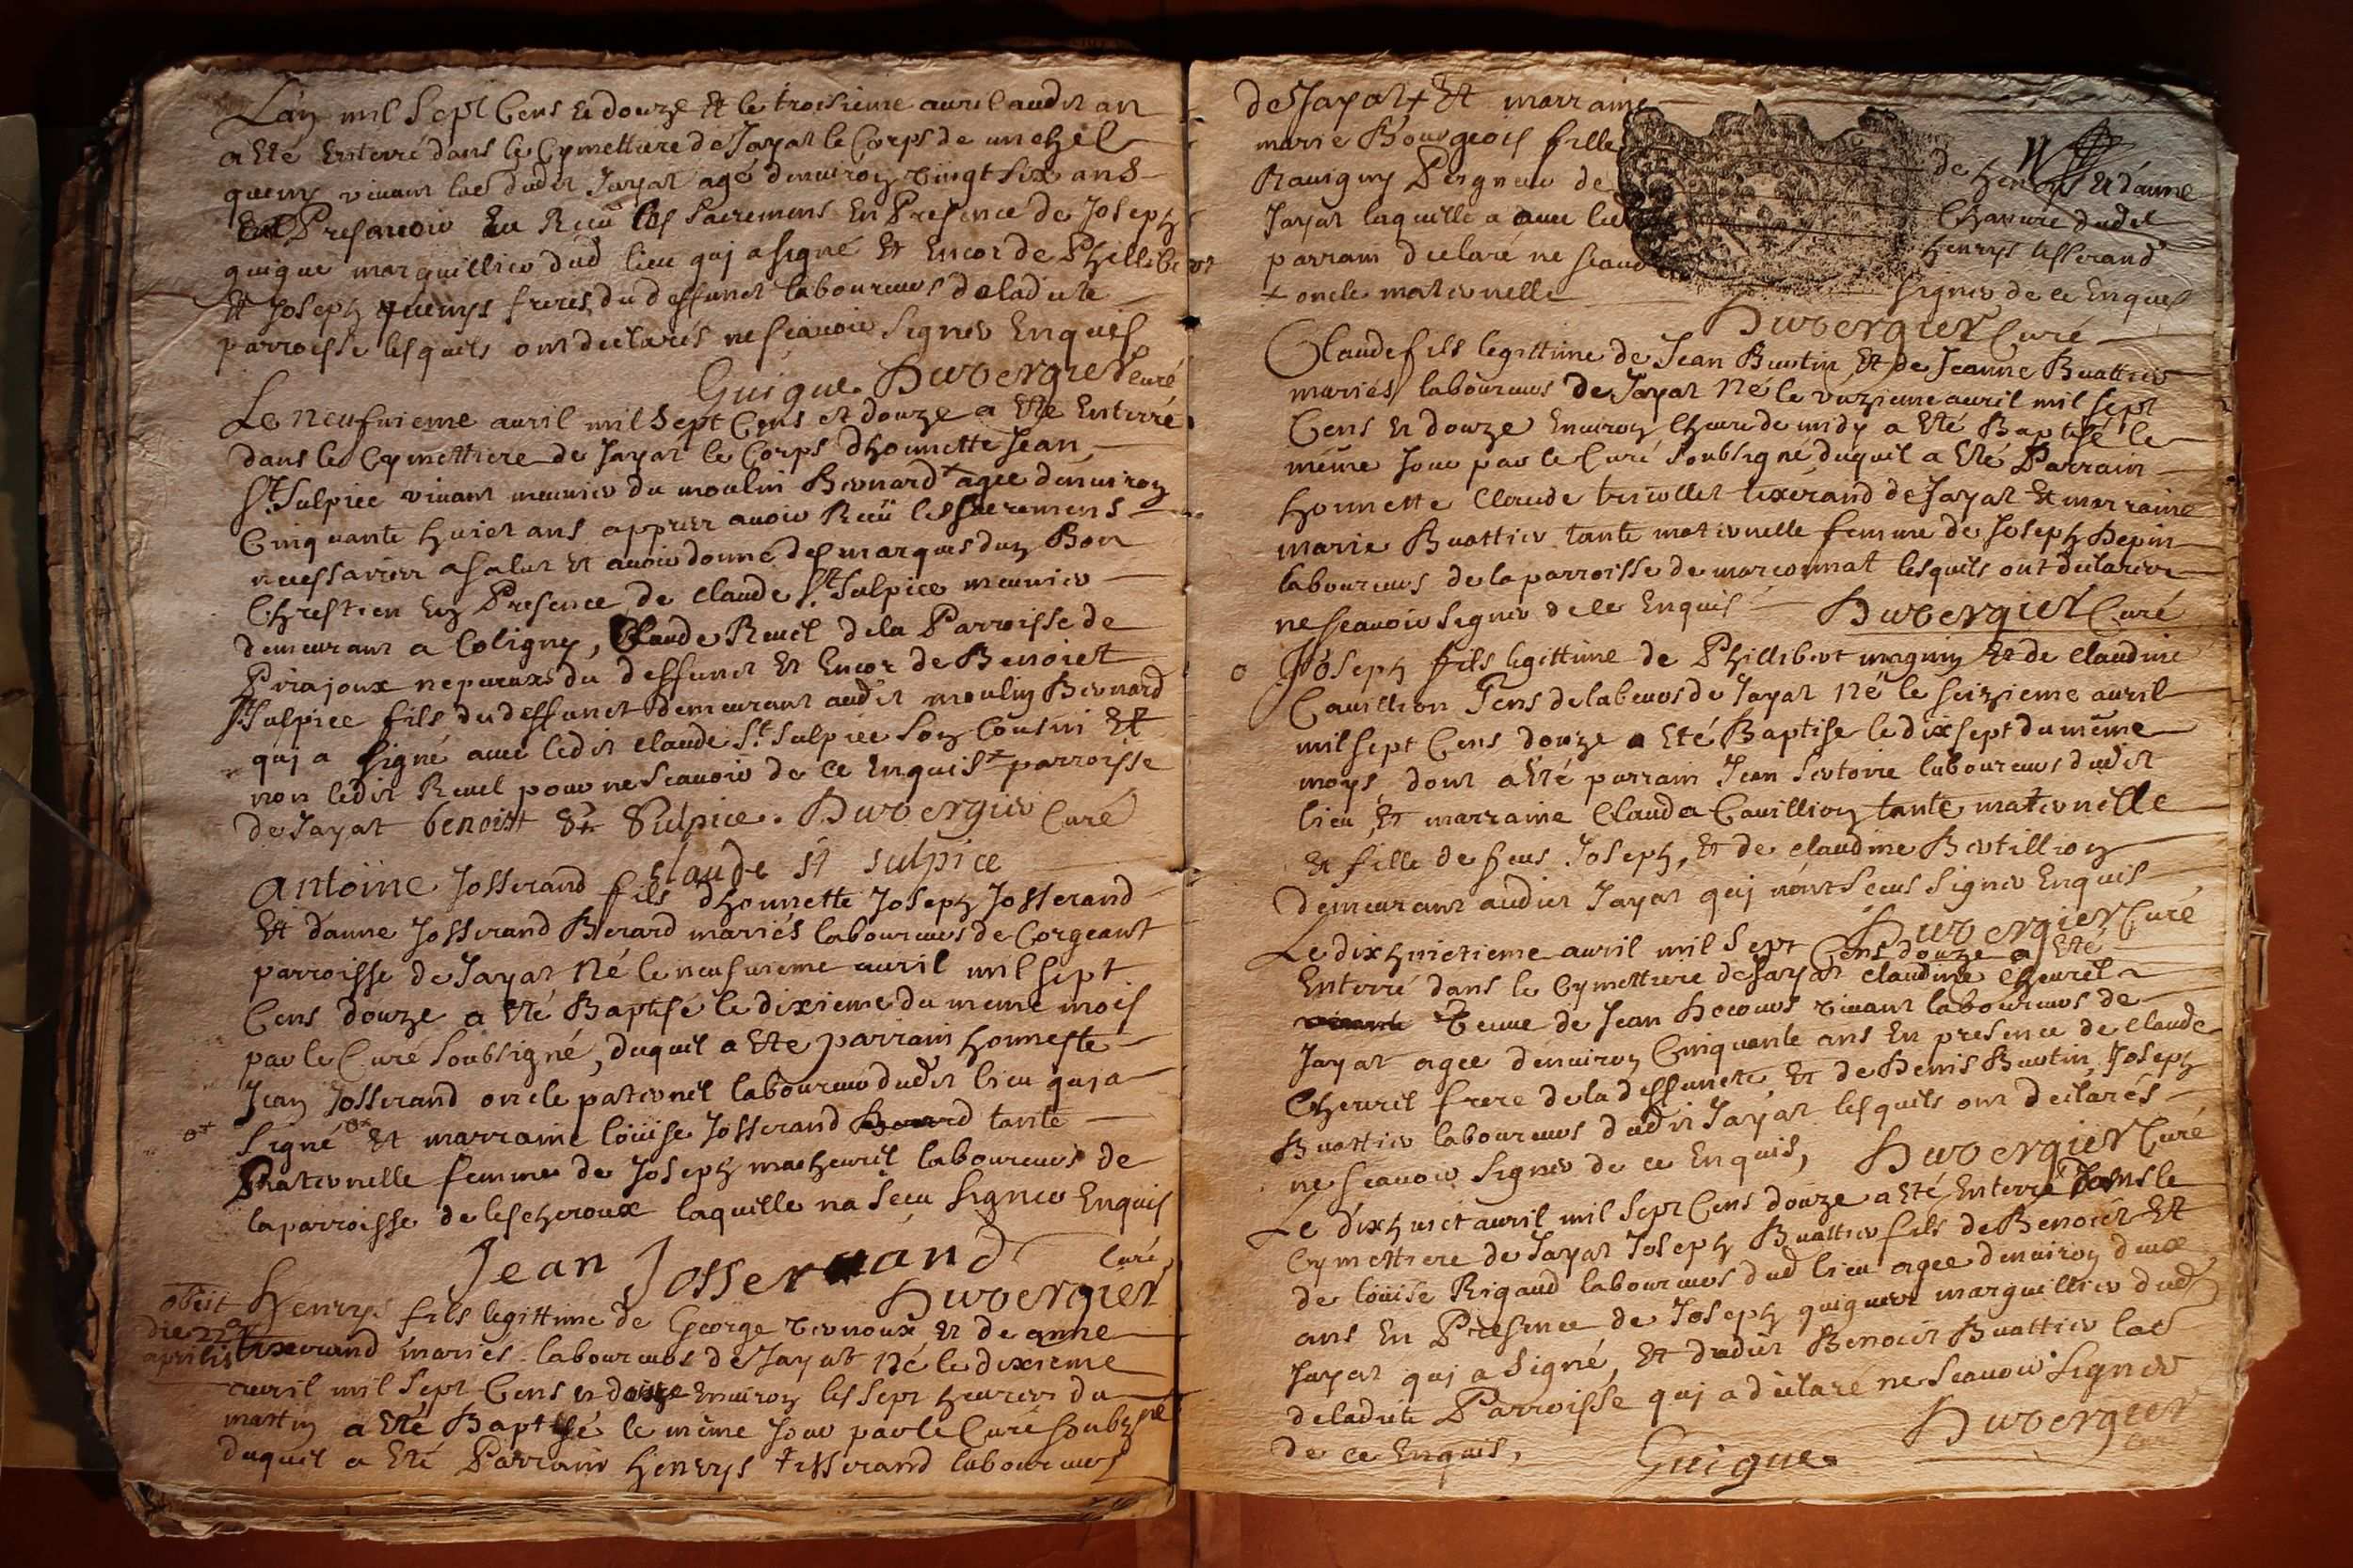 Lan mil Sept Cens et douze et le troisieme auril audit an
a été Enterré dans le Cymettiere de Jayat le Corps de michel
quemy viuant lab dudit Jayat agé denuiron vingt six ans
Pres auoir Receu les Sacremens En Presence de Joseph
guigue marguillier dud lieu quj a signé et Encor de Phillibert
et Joseph quemys freres du deffunct laboureurs de ladicte
parroisse lesquels ont declarés ne scauoir Signer Enquis
Guigue. Duvergier Curé
Le neufuieme auril mil Sept Cens et douze a été Enterré
dans le Cymettiere de Jayat le Corps dhonnette Jean
St Sulpice viuant meunier du moulin Bernard + agee denuiron
Cinquante huict ans apprez auoir Receü les Sacremens
necessaires a salut et auoir donné des marques dun Bon
Chrestien En Presence de claude St Sulpice meunier
demeurant a Coligny, Claude Reuel dela Parroisse de
Pirajoux nepueux du deffunct et Encor de Benoict
St Sulpice fils du deffunct demeurant audit moulin Bernard
quj a signé auec ledit claude St Sulpice Son Cousin et
non ledit Reuel pour ne Scauoir de ce Enquis + parroisse
de Jayat benoist St Sulpice. Duvergier Curé
claude st sulpice
Antoine Josserand fils dhonnette Joseph Josserand
et danne Josserand Berard mariés laboureurs de Corgeant
parroisse de Jayat Né le neufuieme auril mil sept
Cens douze a été Baptisé le dixieme du meme mois
par le Curé Soubsigné, duquel a été parrain honneste
Jean Josserand oncle paternel laboureur dudit lieu quj a
Signé et marraine loüise Josserand tante
Paternelle femme de Joseph macheuril laboureurs de
la parroisse de lescheroux laquelle na Sceu Signer Enquis
Jean Josserand
Curé
Duvergier
obiit
die 22a
aprilis
Henrys fils legittime de George vernoux et de anne
tixerand mariés laboureurs de Jayat Né le dixieme
auril mil Sept Cens et douze Enuiron les sept heures du
mattin a été Baptisé le même Jour par le Curé soubzné
duquel a été Parrain henrys tisserand laboureurs
de Jayat + Et marraine
marie Bourgeois fille de henrys et danne
Rauigny Seigneur de Chanure dudet
Jayat laquelle a auec led henrys tisserand
parrain declaré ne scauoir signer de ce Enquis
+ oncle maternelle
Duvergier Curé
Claude fils legittime de Jean Buatin et de Jeanne Buattier
mariés laboureurs de Jayat Né le unzieme auril mil sept
Cens et douze Enuiron lheure de midy a été Baptisé le
même Jour par le Curé Soubsigné duquel a été Parrain
honnette Claude triollet tixerand de Jayat et marraine
marie Buattier tante maternelle femme de Joseph Depin
laboureurs de la parroisse de marconnat lesquels ont declarer
ne scauoir signer de ce Enquis Duvergier Curé
Joseph fils legittime de Phillibert magnin et de claudine
Cauillion Gens de labeurs de Jayat Né le seizieme auril
mil sept Cens douze a été Baptisé le dix sept du même
moys, dont a été parrain Jean Sertoire laboureurs dudit
lieu et marraine Clauda Cauillion tante maternelle
et fille de feus Joseph, et de claudine Bertillion
demeurant audict Jayat quj nont Sceus Signer Enquis
Duvergier Curé
Le dix huictieme auril mil Sept Cens douze a été
Enterré dans le Cymettiere de Jayat claudine cheuril
veuue de Jean Decours viuant laboureurs de
Jayat agee denuiron Cinquante ans En presence de claude
Cheuril frere dela deffuncte et de Denis Buatin, Joseph
Buattier laboureurs dudit Jayat lesquels ont declarés
ne scauoir Signer de ce Enquis, Duvergier Curé
Le dix huict auril mil Sept Cens douze a été Enterré Dans le
Cymettiere de Jayat Joseph Buattier fils de Benoict et
de loüise Rigaud laboureurs dud lieu agee denuiron deux
ans En Presence de Joseph guigue marguillier dud
Jayat quj a Signé, et dudit Benoict Buattier lab
de ladicte Parroisse quj a declaré ne Scauoir Signer
de ce Enquis,
Guigue.
Duvergier
Curé